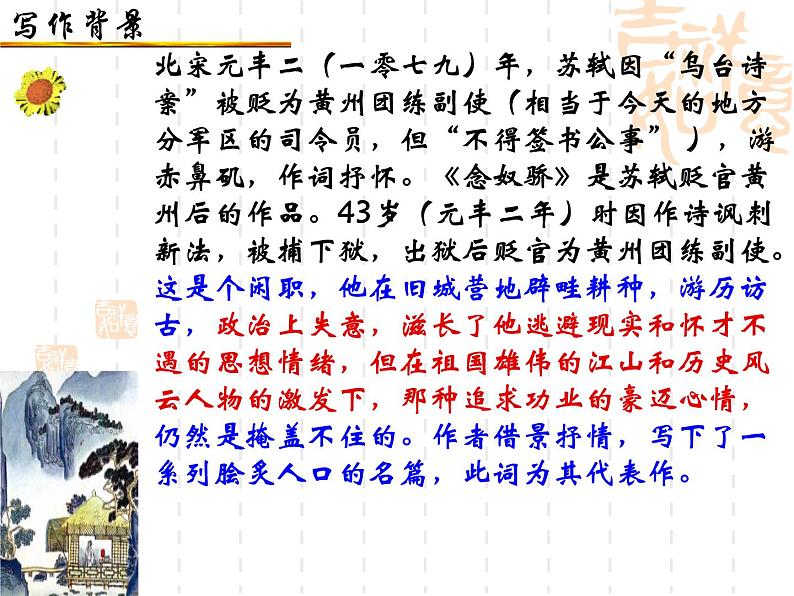 写作背景
北宋元丰二（一零七九）年，苏轼因“乌台诗
案”被贬为黄州团练副使（相当于今天的地方
分军区的司令员，但“不得签书公事”），游
赤鼻矶，作词抒怀。《念奴骄》是苏轼贬官黄
州后的作品。43岁（元丰二年）时因作诗讽刺
新法，被捕下狱，出狱后贬官为黄州团练副使。
这是个闲职，他在旧城营地辟畦耕种，游历访
古，政治上失意，滋长了他逃避现实和怀才不
遇的思想情绪，但在祖国雄伟的江山和历史风
云人物的激发下，那种追求功业的豪迈心情，
仍然是掩盖不住的。作者借景抒情，写下了一
系列脍炙人口的名篇，此词为其代表作。
吉祥如意
吉祥如意
吉祥如意